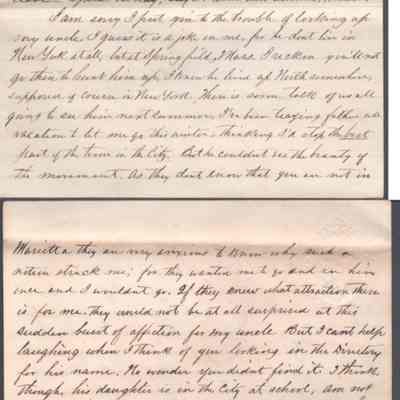 I am sorry I put you to the trouble of looking up
my uncle. I guess it is a joke on me, for he dont live in
New York at all, but at Springfield, Mass. I reckon you'll not
go there to hunt him up. I knew he lived up North somewhere,
supposed of course in New York. There is some talk of us all
going to see him next summer. I've been teazing father all
vacation to let me go this winter, thinking I'd stop the best
part of the time in the City. But he couldn't see the beauty of
the movement. As they dont know that you are not in
Marietta they are very anxious to know why such a
notion struck me; for they wanted me to go and see him
once and I wouldn't go. If they knew what attraction there
is for me they would not be at all surprised at this
sudden burst of affection for my uncle But I can't help
laughing when I think of you looking in the Directory
for his name. No wonder you didn't find it. I think
though, his daughter is in the City at school, am not